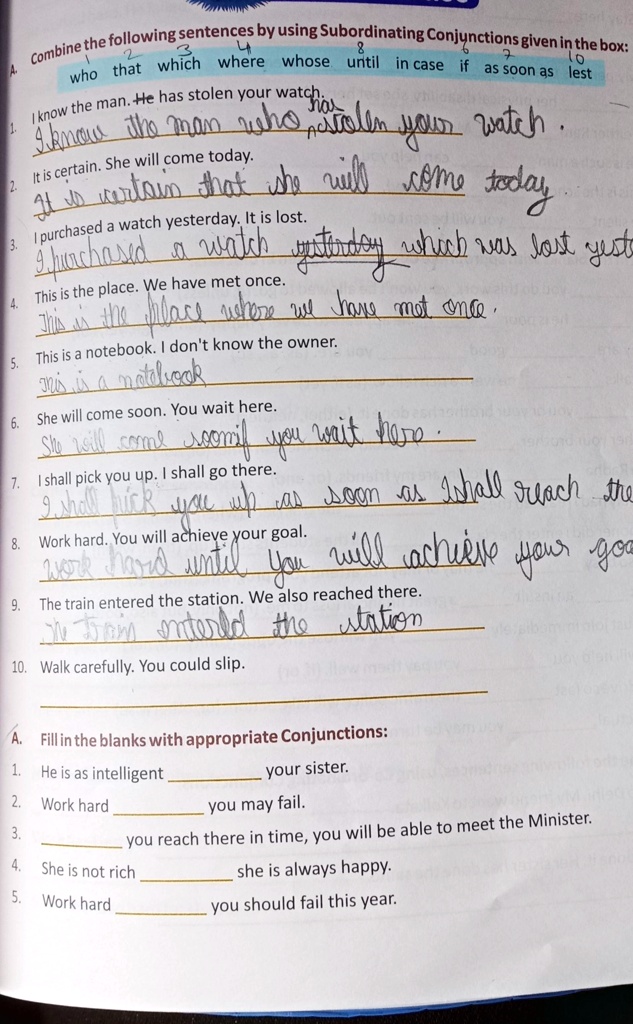 A. Combine the following sentences by using Subordinating Conjunctions given in the box:
1 2 3 4 8 6 7 10
who that which where whose until in case if as soon as lest
1. I know the man. He has stolen your watch.
I know the man who has stolen your watch.
2. It is certain. She will come today.
It is certain that she will come today
3. I purchased a watch yesterday. It is lost.
I purchased a watch yesterday which was lost yest
4. This is the place. We have met once.
This is the place where we have met once.
5. This is a notebook. I don't know the owner.
This is a notebook
6. She will come soon. You wait here.
She will come soon if you wait here.
7. I shall pick you up. I shall go there.
I shall pick you up as soon as I shall reach the
8. Work hard. You will achieve your goal.
work hard until you will achieve your goa
9. The train entered the station. We also reached there.
The train entered the station
10. Walk carefully. You could slip.
A. Fill in the blanks with appropriate Conjunctions:
1. He is as intelligent ________ your sister.
2. Work hard ________ you may fail.
3. ________ you reach there in time, you will be able to meet the Minister.
4. She is not rich ________ she is always happy.
5. Work hard ________ you should fail this year.